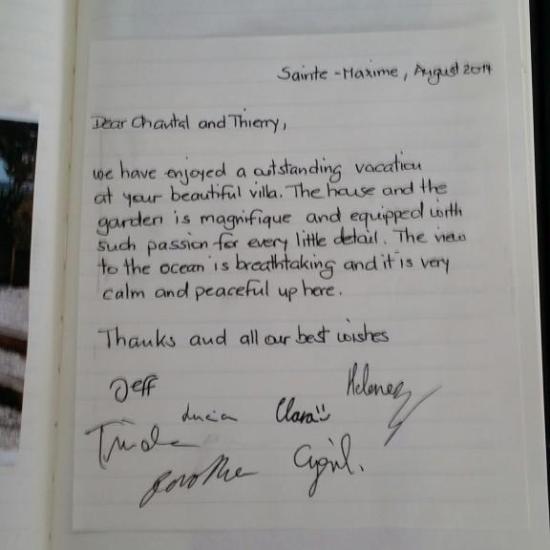 Sainte-Maxime, August 2014
Dear Chantal and Thierry,
we have enjoyed a outstanding vacation
at your beautiful villa. The house and the
garden is magnifique and equipped with
such passion for every little detail. The view
to the ocean is breathtaking and it is very
calm and peaceful up here.
Thanks and all our best wishes
Jeff
Lucia Clara